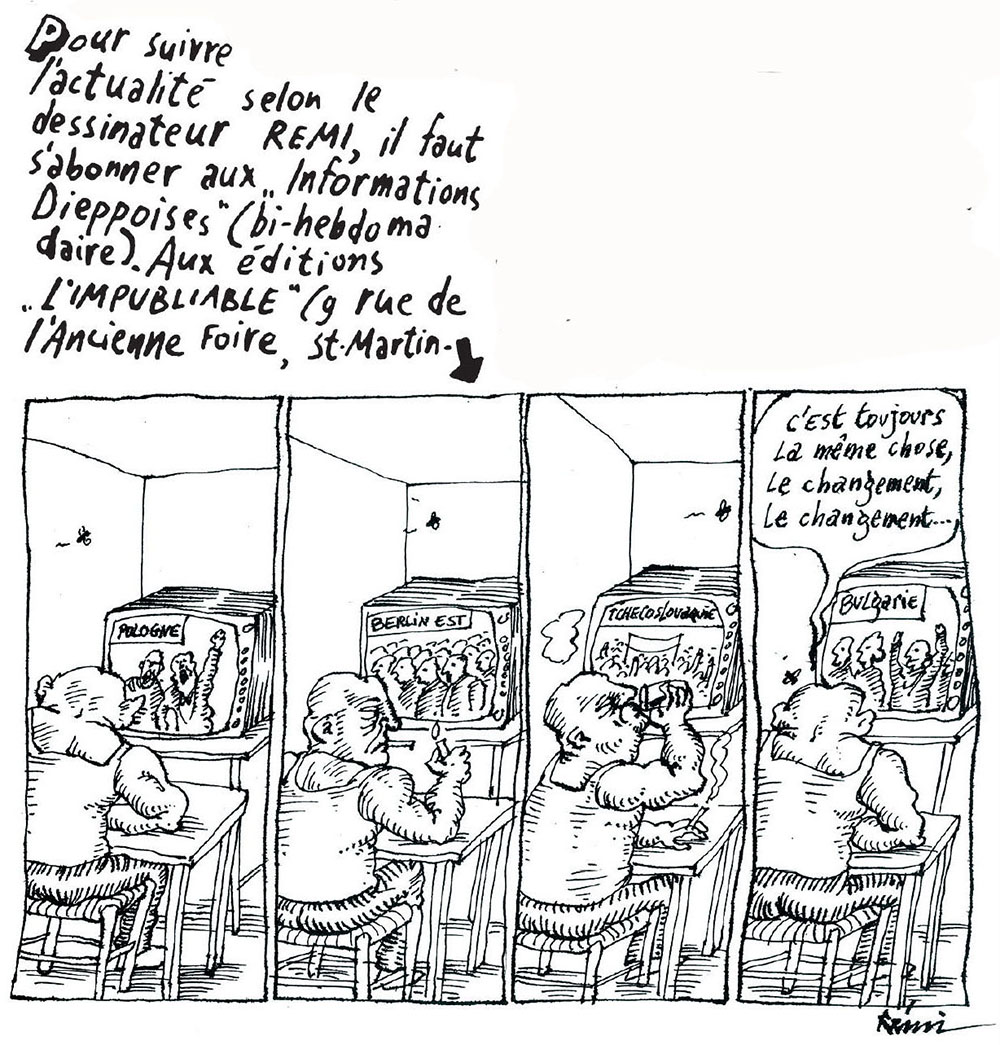 Pour suivre
l'actualité selon le
dessinateur REMI, il faut
s'abonner aux „Informations
Dieppoises" (bi-hebdoma
daire). Aux éditions
„L'IMPUBLIABLE" (9 rue de
l'Ancienne Foire, St-Martin-
C'EST toujours
La même chose,
Le changement,
Le changement...,
POLOGNE
BERLIN EST
TCHECOSLOVAQUIE
BULgarie
Rémi